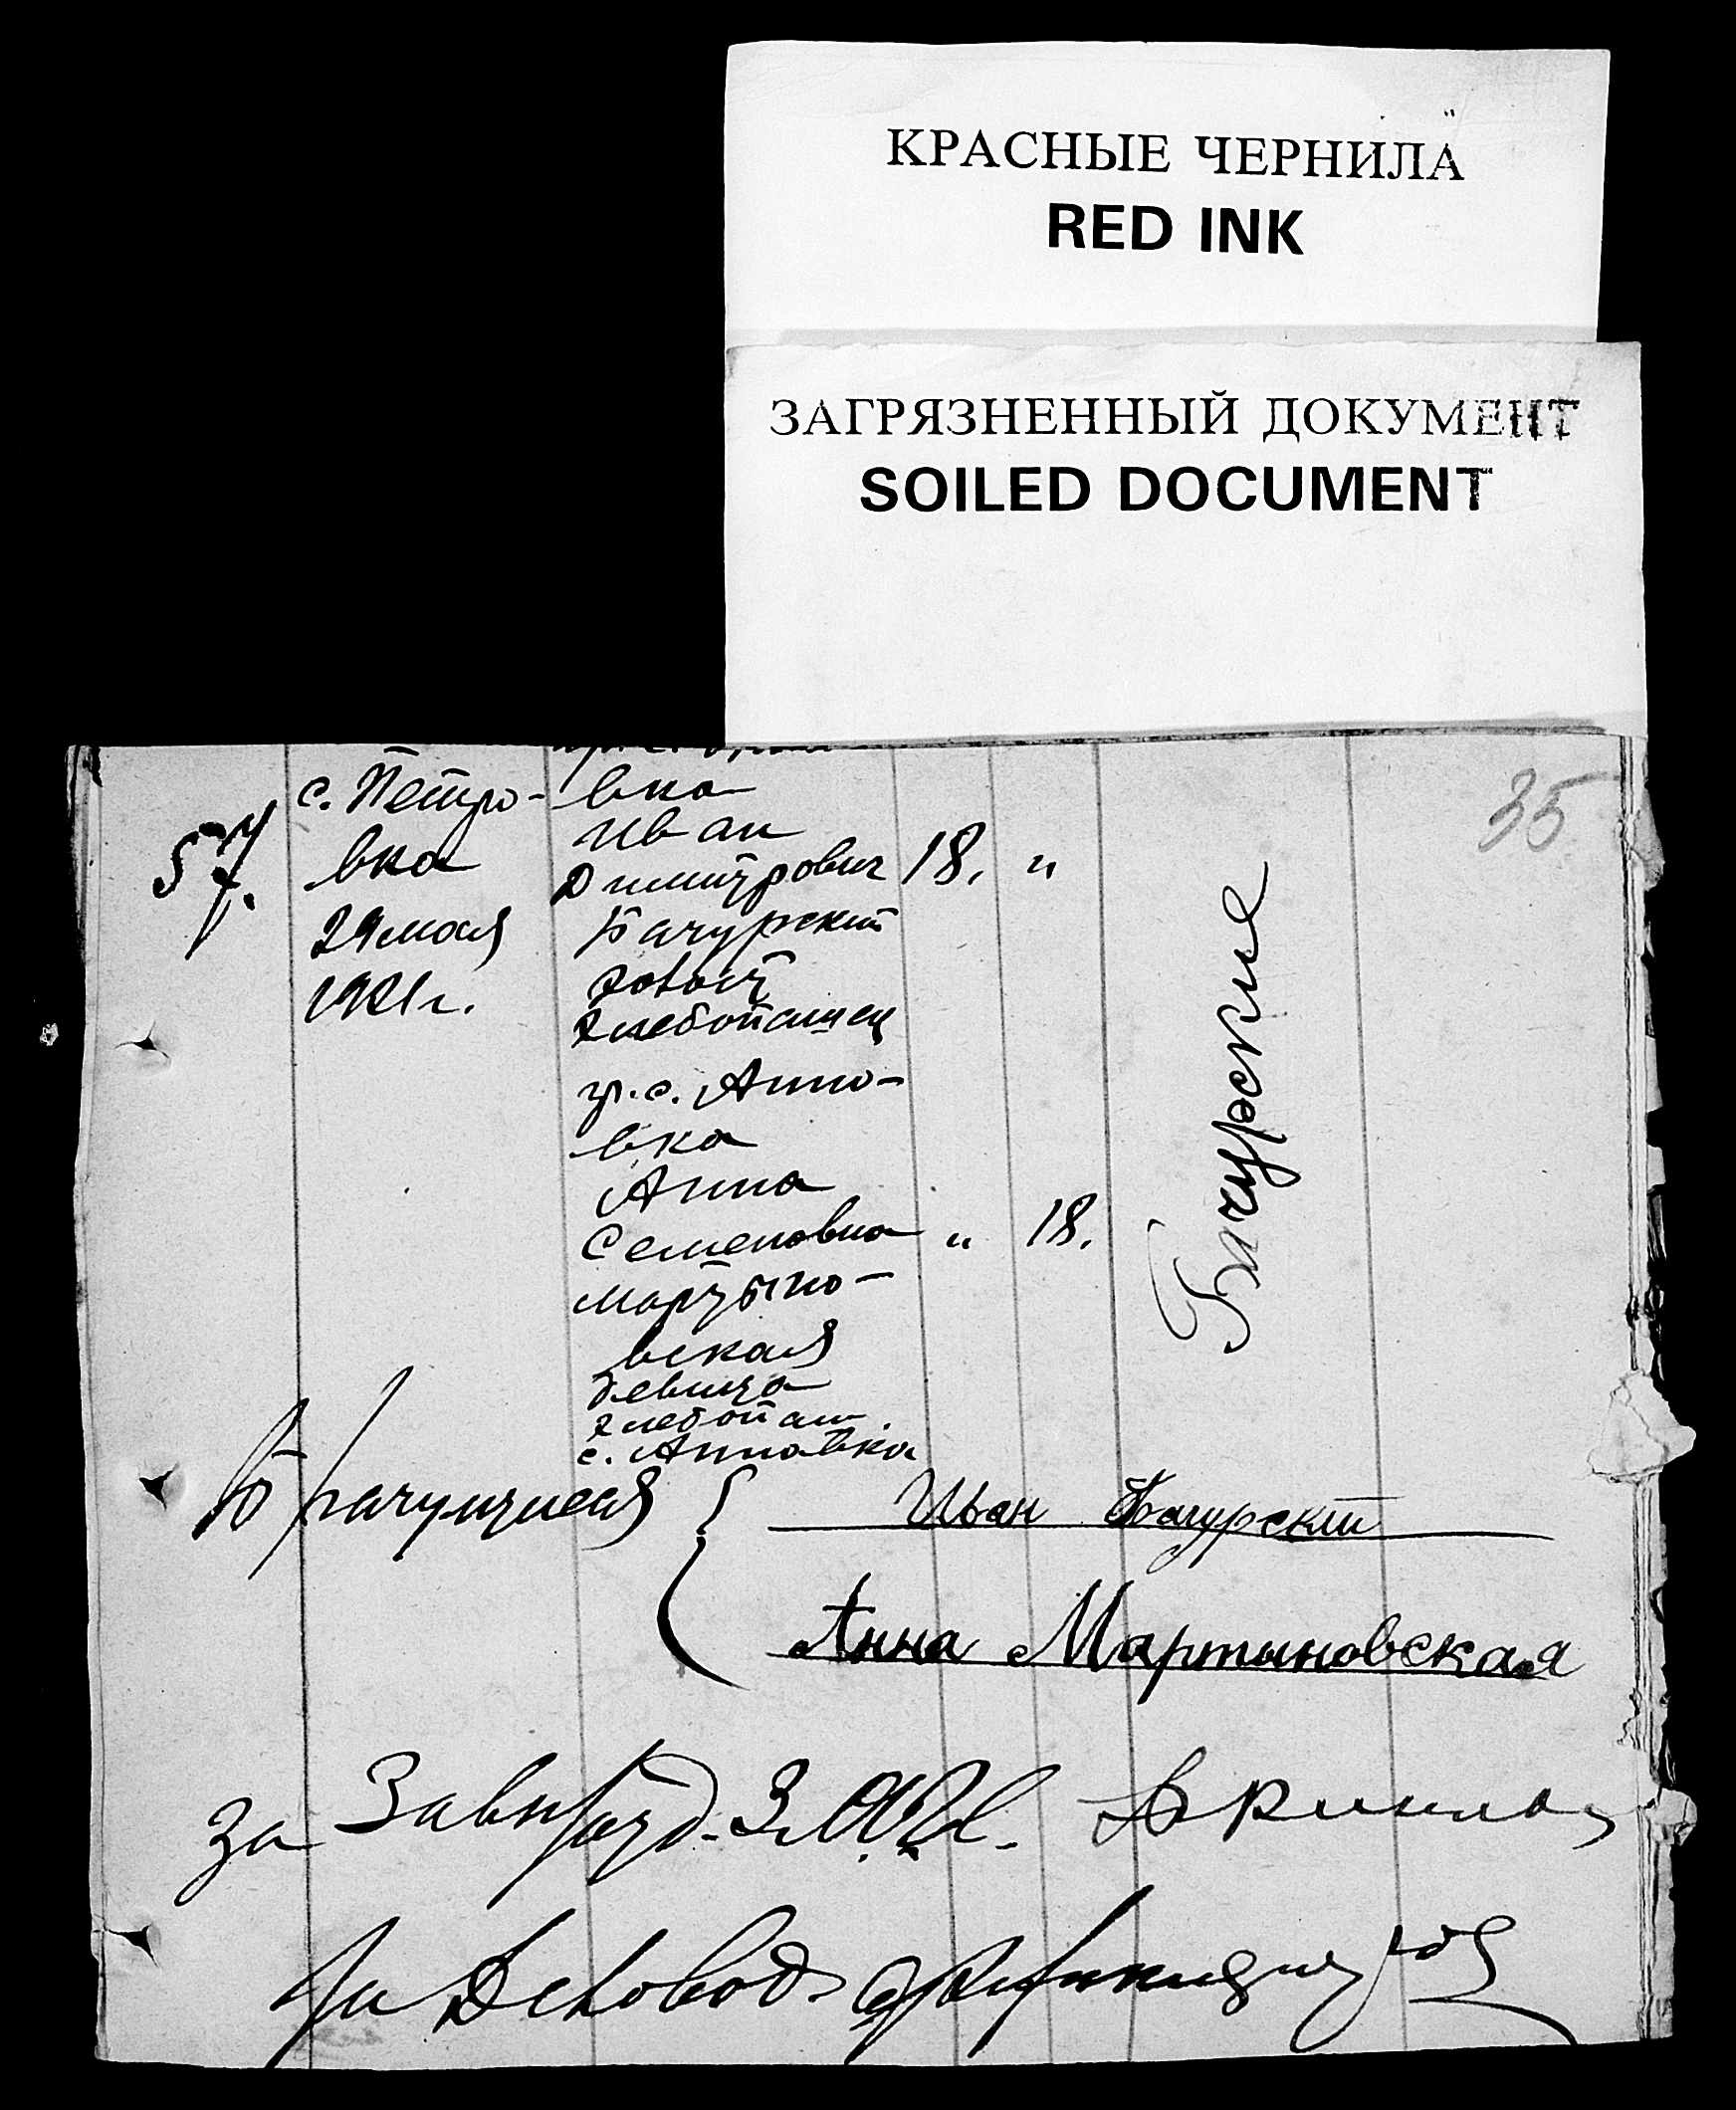 КРАСНЫЕ ЧЕРНИЛА
RED INK
ЗАГРЯЗНЕННЫЙ ДОКУМЕНТ
SOILED DOCUMENT
35
57.
с. Петро-
вка
29 мая
1921 г.
вка
Иван
Димитрович 18. "
Бачурский
холост
хлебопашец
гр. с. Анно-
вка
Анна
Семеновна " 18.
Мартыно-
вская
девица
хлебопаш.
с. Анновка
Бачурские
Брачущиеся { Иван Бачурский
Анна Мартыновская
за Завподотд. З.А.Г.С.
За Деловод.